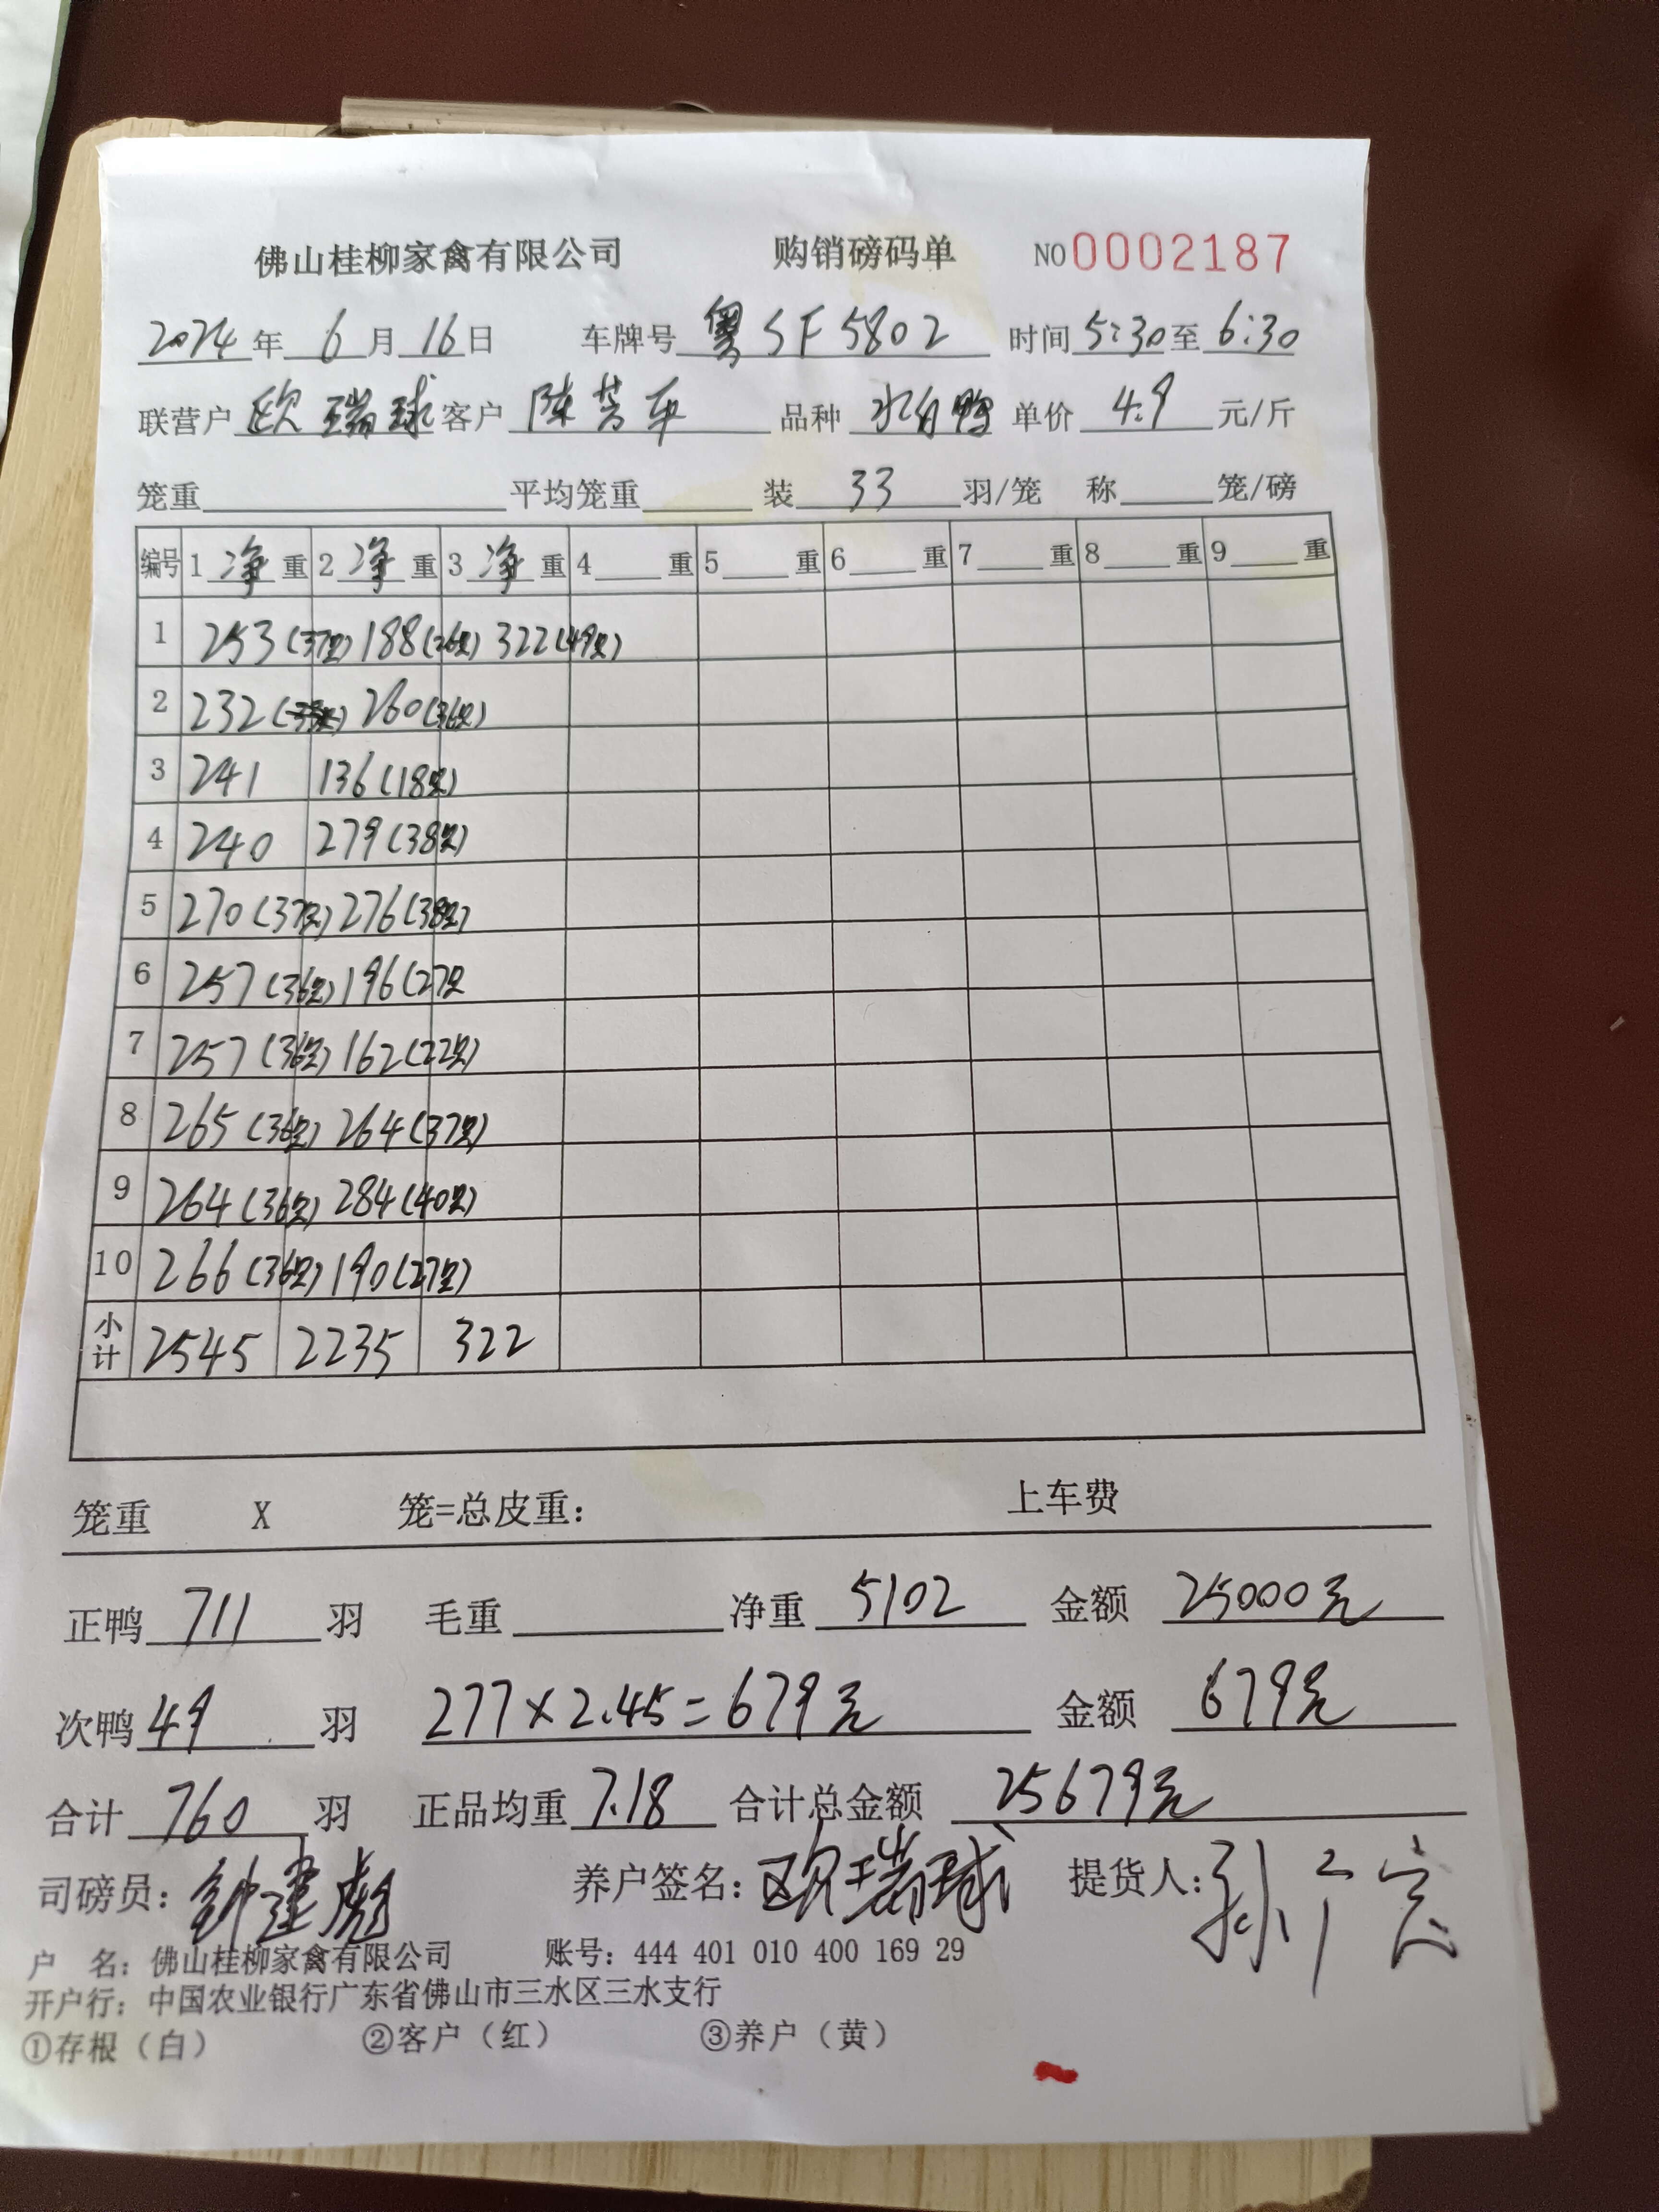 佛山桂柳家禽有限公司 购销磅码单 NO 0002187
2024年 6月 16日 车牌号 粤SF5802 时间 5:30 至 6:30
联营户 欧瑞球 客户 陈 品种 水鸭 单价 4.9 元/斤
笼重 平均笼重 装 33 羽/笼 称 笼/磅
编号 1 净 重 2 净 重 3 净 重 4 重 5 重 6 重 7 重 8 重 9 重
1 253(37只) 188(26只) 322(49只)
2 232 260(36只)
3 241 136(18只)
4 240 279(38只)
5 270(37只) 276(38只)
6 257(36只) 196(27只
7 257(36只) 162(22只)
8 265(36只) 264(37只)
9 264(36只) 284(40只)
10 266(36只) 190(27只)
小计 2545 2235 322
笼重 X 笼=总皮重: 上车费
正鸭 711 羽 毛重 净重 5102 金额 25000元
次鸭 49 羽 277×2.45=679元 金额 679元
合计 760 羽 正品均重 7.18 合计总金额 25679元
司磅员: 钟建彪 养户签名: 欧瑞球 提货人: 孙广宏
户 名: 佛山桂柳家禽有限公司 账号: 444 401 010 400 169 29
开户行: 中国农业银行广东省佛山市三水区三水支行
①存根（白） ②客户（红） ③养户（黄）